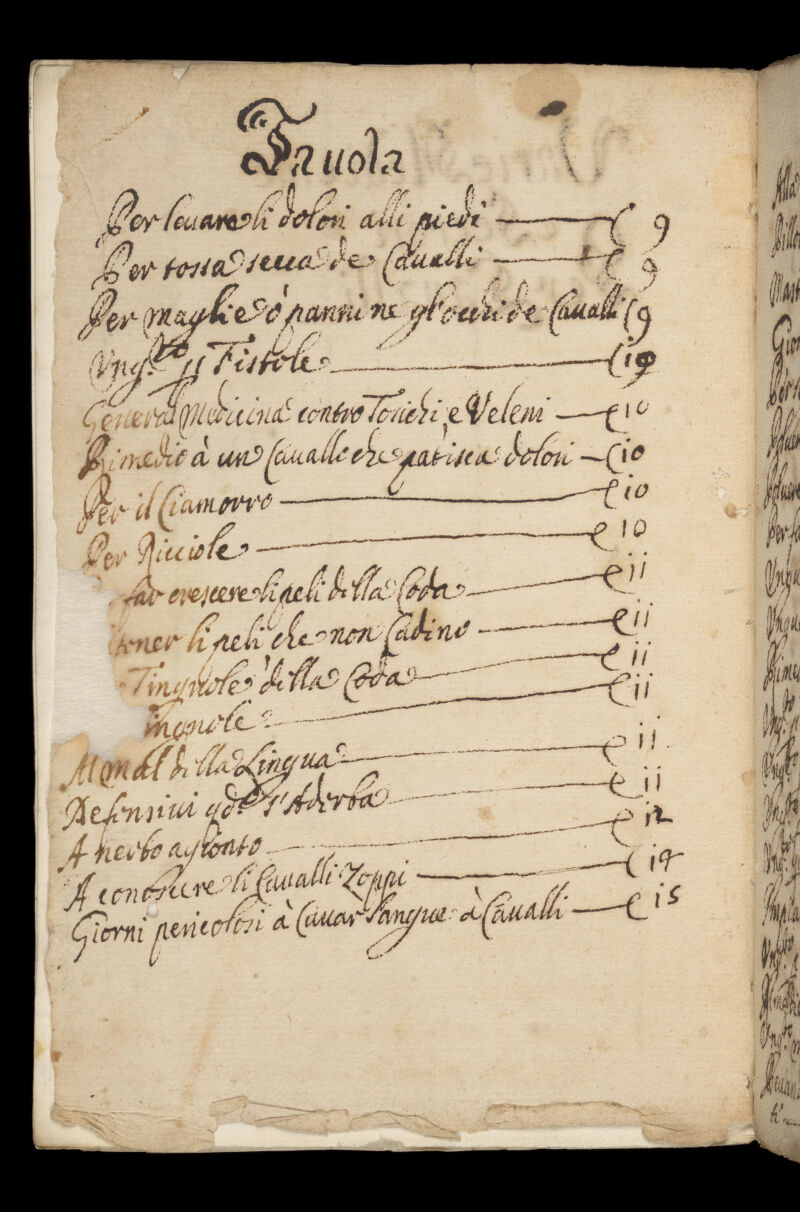 Tauola
Per leuare li dolori alli piedi — c 9
Per tossa secca de Caualli — c 9
Per maglie ò panni ne gl'occhi de Caualli c 9
Vng.to p Fistole — c 10
General Medicina contro Tosichi, e Veleni — c 10
Rimedio à un Cauallo che patisca dolori — c 10
Per il Ciamorro — c 10
Per Ricciole — c 10
far crescere li peli della Coda — c 11
tener li peli che non Cadino — c 11
Tingnole della Coda — c 11
Tingnole — c 11
Al mal della Lingua — c 11
Defensiui qdo s'Aderba — c 11
A nerbo agionto — c 12
A conoscere li Caualli Zoppi — c 14
Giorni pericolosi à Cauar Sangue à Caualli — c 15